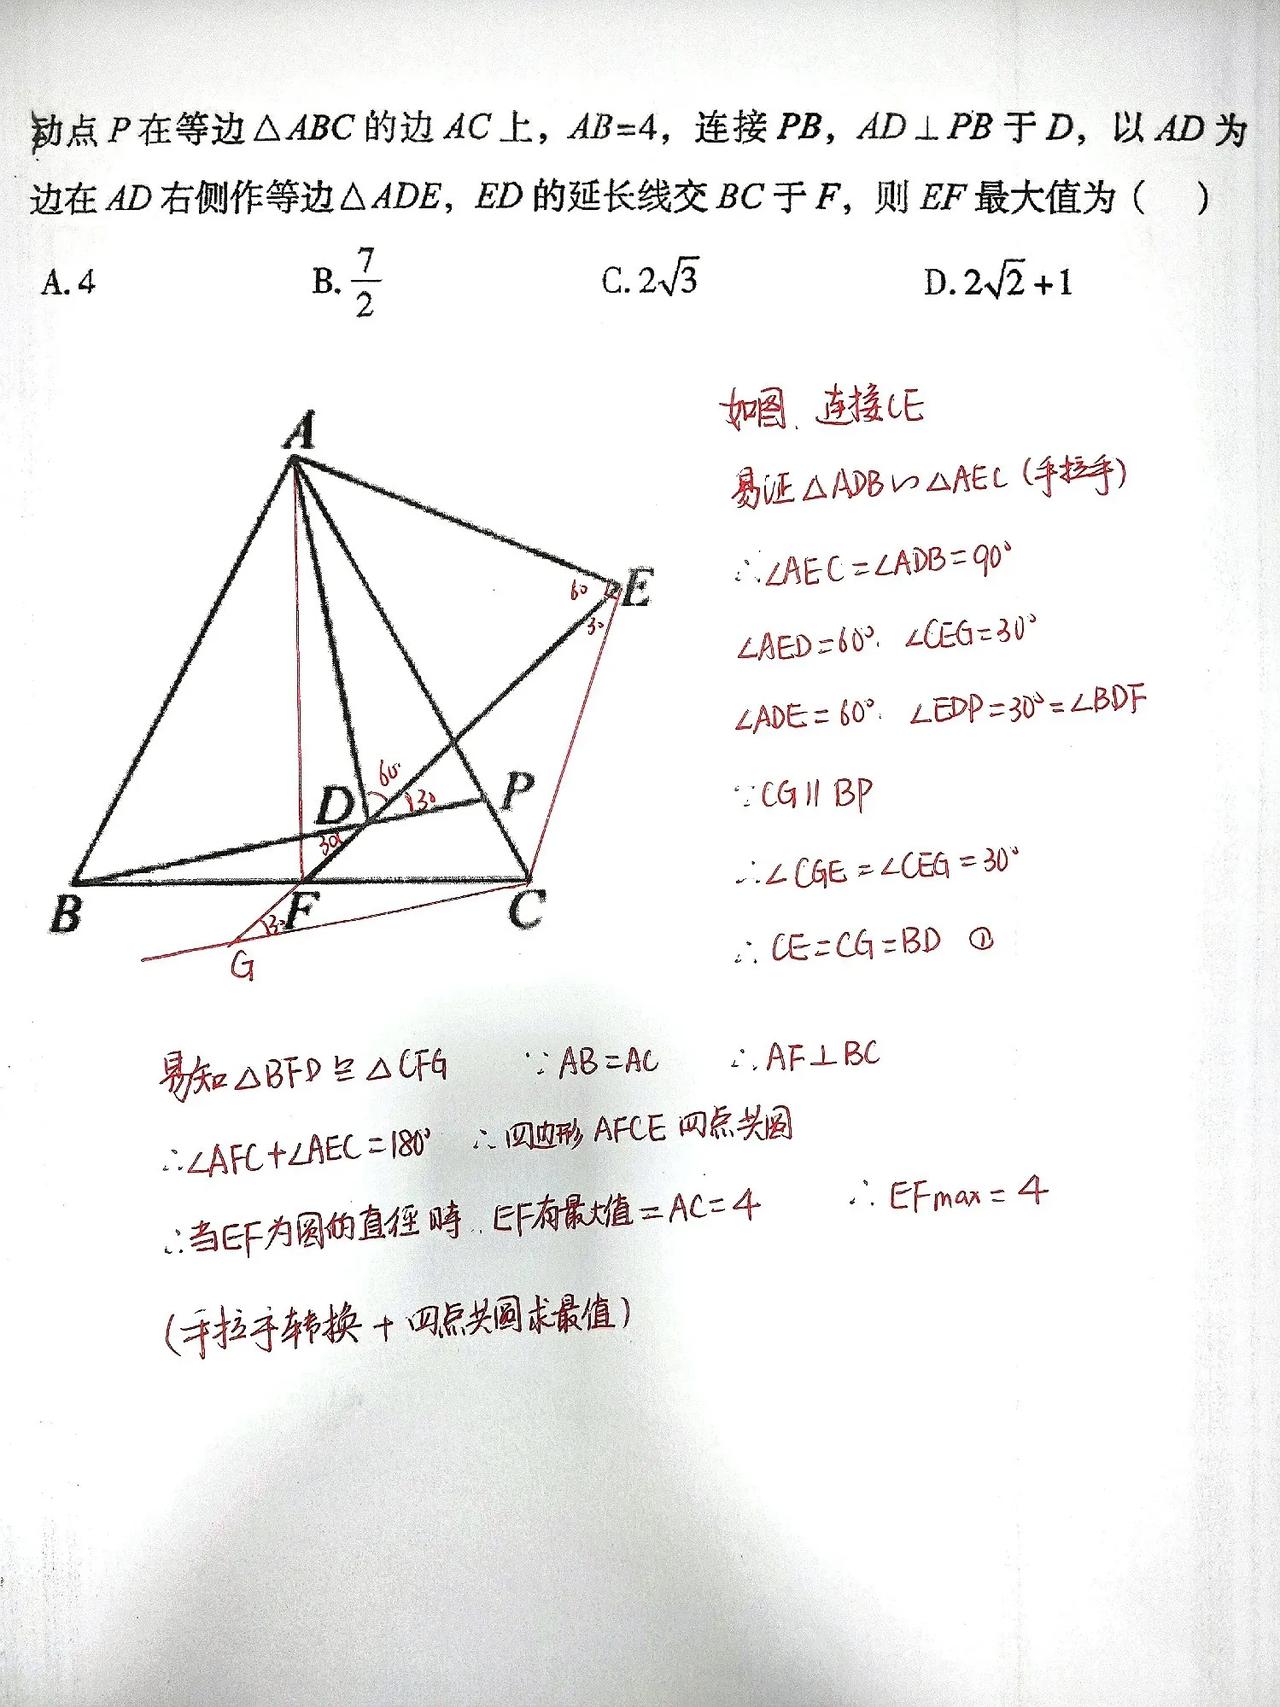 动点 P 在等边△ABC 的边 AC 上，AB=4，连接 PB，AD⊥PB 于 D，以 AD 为
边在 AD 右侧作等边△ADE，ED 的延长线交 BC 于 F，则 EF 最大值为（ ）
A. 4 B. 7/2 C. 2√3 D. 2√2+1
如图、连接CE
A
易证△ADB∽△AEC (手拉手)
∴∠AEC=∠ADB=90°
60 E
30
∠AED=60°. ∠CEG=30°
∠ADE=60°. ∠EDP=30°=∠BDF
60 P
D 30
30
∵CG∥BP
∴∠CGE=∠CEG=30°
B F C
30
G
∴CE=CG=BD ①
易知△BFD≌△CFG ∵AB=AC ∴AF⊥BC
∴∠AFC+∠AEC=180° ∴四边形 AFCE 四点共圆
∴当EF为圆的直径时..EF有最大值=AC=4 ∴EFmax=4
(手拉手转换+四点共圆求最值)